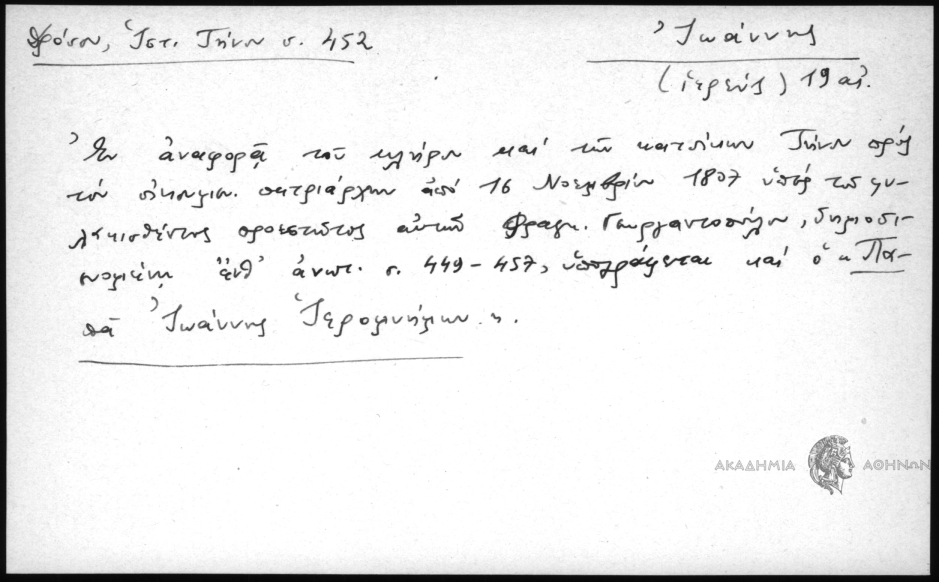 Δρόσου, Ἱστ. Τήνου σ. 452
Ἰωάννης
(ἱερεύς) 19 αἰ.
Ἐν ἀναφορᾷ τοῦ κλήρου καὶ τῶν κατοίκων Τήνου πρός
τόν οἰκουμ. πατριάρχην ἀπό 16 Νοεμβρίου 1807 ὑπέρ τοῦ φυ-
λακισθέντος προεστῶτος αὐτῶν Φραγκ. Γεωργαντοπούλου, δημοσι-
ευομένῃ ἔνθ' ἀνωτ. σ. 449-457, ὑπογράφεται καί ὁ « Πα-
πᾶ Ἰωάννης Ἱερομνήμων ».
ΑΚΑΔΗΜΙΑ ΑΘΗΝΩΝ